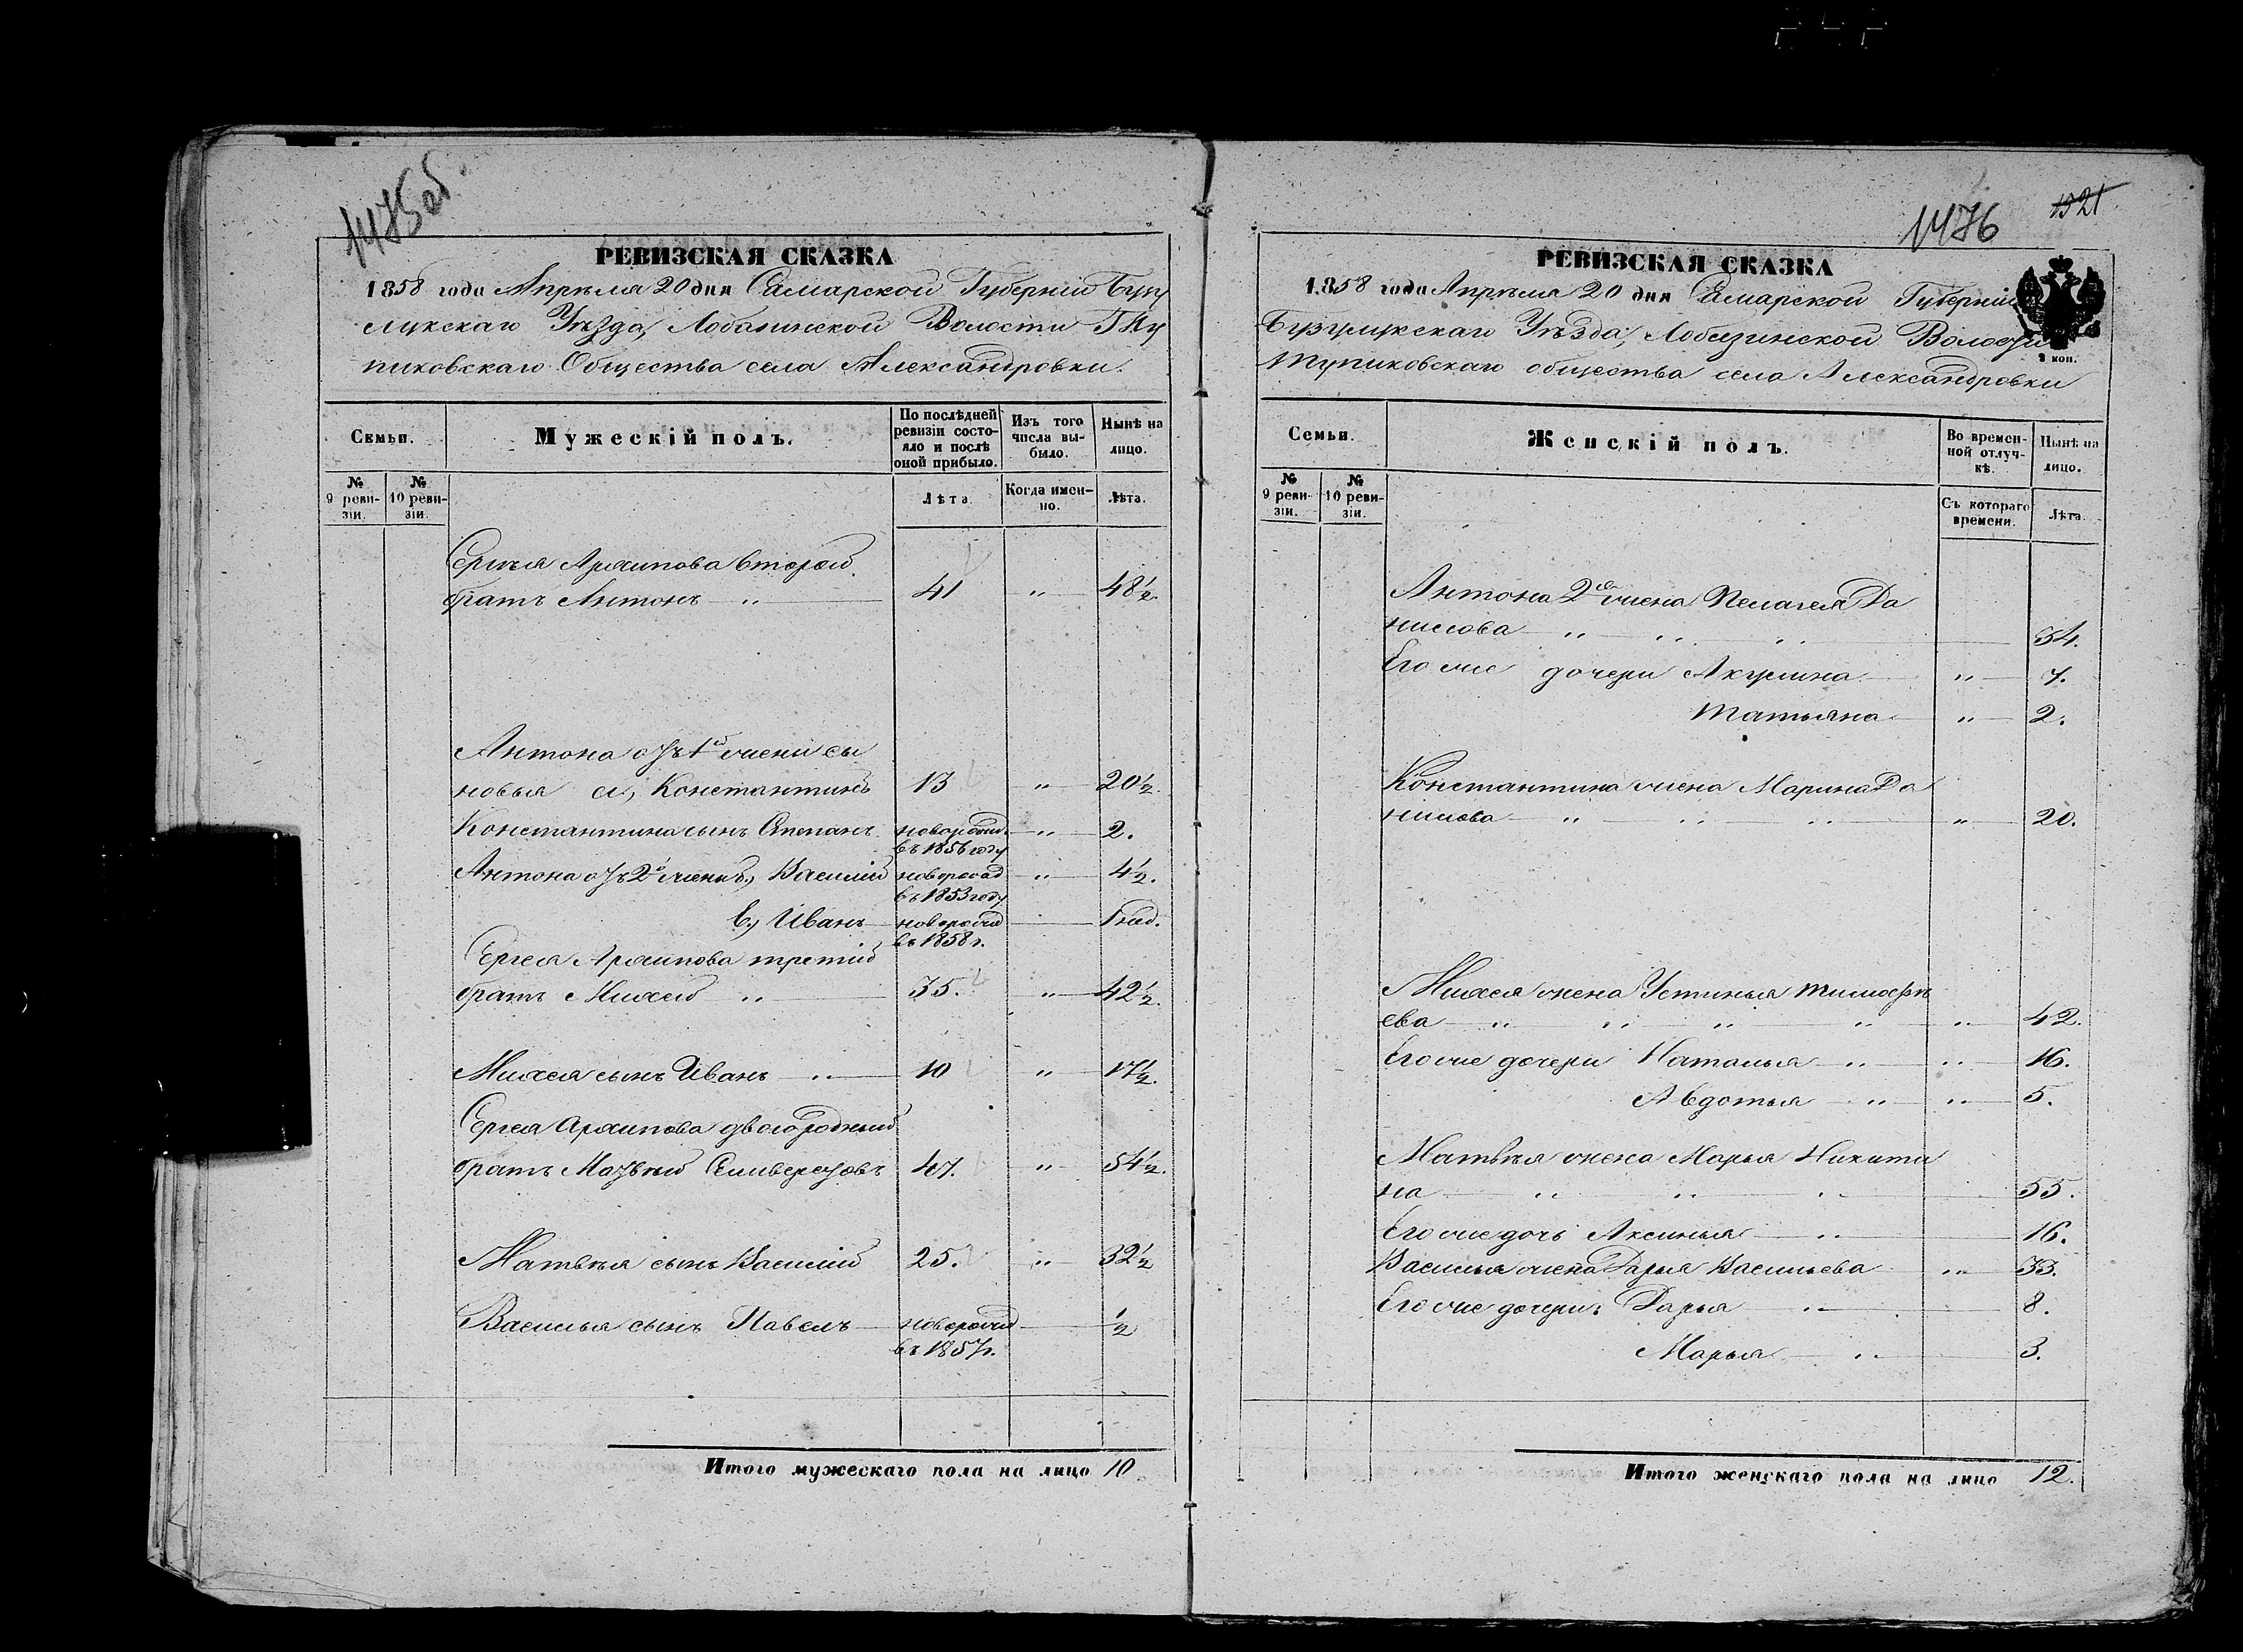 1475об.
РЕВИЗСКАЯ СКАЗКА
1858 года Апрѣля 20 дня Самарской Губерніи Бузу
лукскаго Уѣзда, Лобазинской Волости Ту
пиковскаго Общества села Александровки.
Семьи.
Мужескій полъ.
По послѣдней ревизіи состояло и послѣ оной прибыло.
Изъ того числа выбыло.
Нынѣ на лицо.
№ 9 ревизіи.
№ 10 ревизіи.
Лѣта
Когда именно.
Лѣта.
Сергѣя Архипова второй
братъ Антонъ " 41 " 48½.
Антона отъ 1й жены сы
новья а, Константинъ 13 " 20½.
Константина сынъ Степанъ новорожд " 2.
въ 1856 году
Антона отъ 2й жены б, Василій новорожд " 4½.
въ 1853 году
в, Иванъ новорожд 1 нед.
въ 1858 г.
Сергея Архипова третій
братъ Михей " 35. " 42½.
Михея сынъ Иванъ " 10 " 17½.
Сергея Архипова двоюродный
братъ Матвѣй Селиверстовъ 47. " 54½.
Матвѣя сынъ Василій 25. " 32½
Василья сынъ Павелъ новорожд ½
въ 1857 г.
Итого мужескаго пола на лицо 10
1476
1521
РЕВИЗСКАЯ СКАЗКА
1858 года Апрѣля 20 дня Самарской Губерніи
Бузулукскаго Уѣзда, Лобазинской Волости
Тупиковскаго общества села Александровки
коп.
Семьи.
Женскій полъ.
Во временной отлучкѣ.
Нынѣ на лицо.
№ 9 ревизіи.
№ 10 ревизіи.
Съ котораго времени.
Лѣта.
Антона 2я жена Пелагея Да
нилова " " " 34.
Его же дочери Акулина " 7.
Татьяна " 2.
Константина жена Марина Да
нилова " " " " 20.
Михея жена Устинья Тимофѣ
ева " " " " " 42.
Его же дочери Наталья " " 16.
Авдотья " " 5.
Матвѣя жена Марья Никити
на " " " 55.
Его же дочь Аксинья " 16.
Василья жена Дарья Васильева " 33.
Его же дочери: Дарья " 8.
Марья " 3.
Итого женскаго пола на лицо 12.